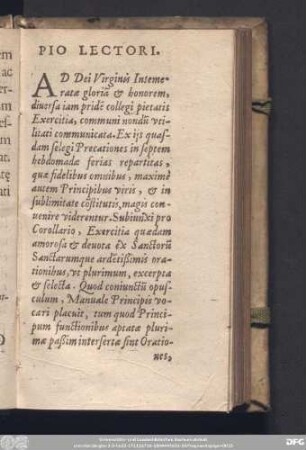 PIO LECTORI.
AD Dei Virginis Inteme-
ratæ gloriã & honorem,
diuersa iam pridē collegi pietatis
Exercitia, communi nondũ vti-
litati communicata. Ex ijs quas-
dam selegi Precationes in septem
hebdomadæ ferias repartitas,
quæ fidelibus omnibus, maximè
autem Principibus viris, & in
sublimitate cõstitutis, magis con-
uenire viderentur. Subiunxi pro
Corollario, Exercitia quædam
amorosa & deuota èx Sanctorũ
Sanctarumque ardētissimis ora-
tionibus, vt plurimum, excerpta
& selecta. Quod coniunctũ opus-
culum, Manuale Principis vo-
cari placuit, tum quod Princi-
pum functionibus aptatæ pluri-
mæ passim insertæ sint Oratio-
nes,